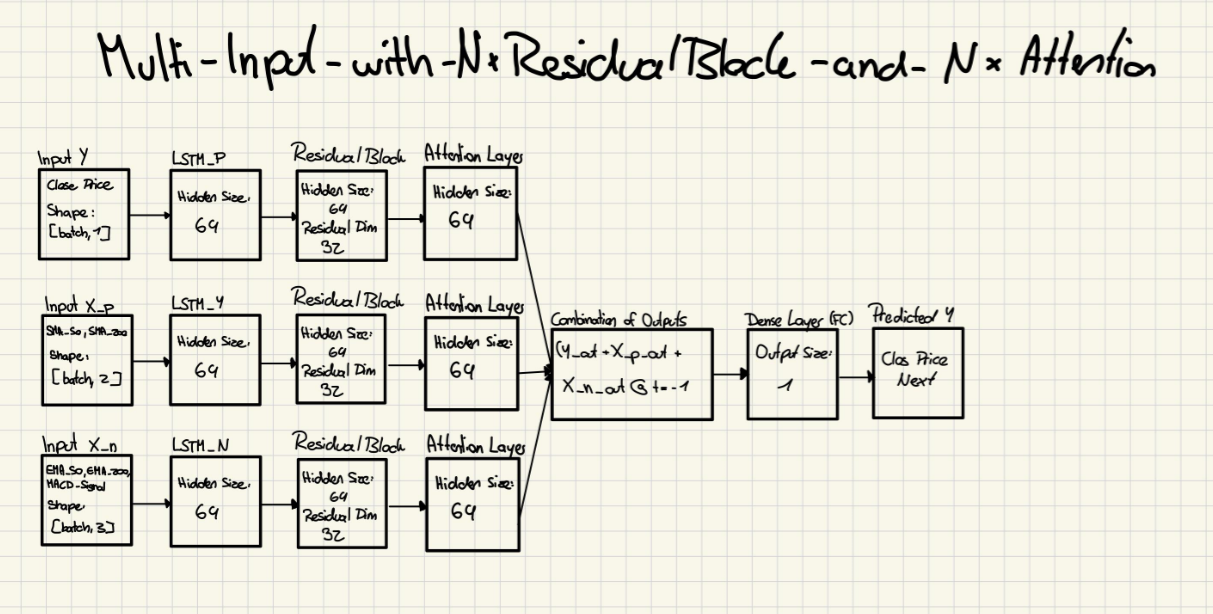 Multi-Input-with-N×ResidualBlock-and-N×Attention
Input Y
Close Price
Shape:
[batch, 1]
LSTM_P
Hidden Size:
64
ResidualBlock
Hidden Size:
64
Residual Dim
32
Attention Layer
Hidden Size:
64
Input X_p
SMA_50, SMA_200
Shape:
[batch, 2]
LSTM_Y
Hidden Size:
64
ResidualBlock
Hidden Size:
64
Residual Dim
32
Attention Layer
Hidden Size:
64
Input X_n
EMA_50, EMA_200,
MACD-Signal
Shape
[batch, 3]
LSTM_N
Hidden Size:
64
ResidualBlock
Hidden Size:
64
Residual Dim
32
Attention Layer
Hidden Size:
64
Combination of Outputs
(Y_out + X_p_out +
X_n_out @ t=-1
Dense Layer (FC)
Output Size:
1
Predicted Y
Clos Price
Next